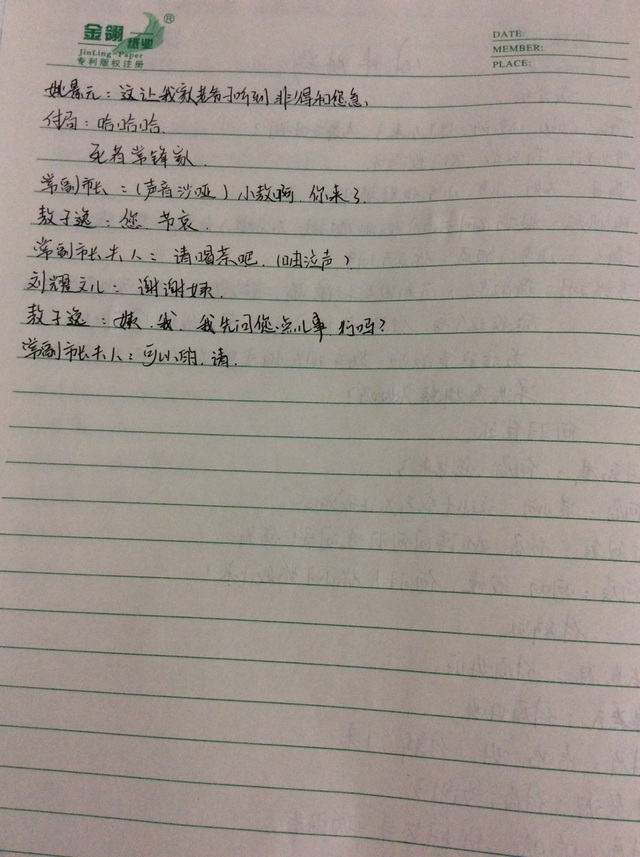 金翎 纸业®
JinLing-Paper
专利版权注册
DATE:
MEMBER:
PLACE:
姚景元：这让我家老爷子听到非得和您急.
付局：哈哈哈.
死者常锋家.
常副市长：(声音沙哑) 小敖啊 你来了.
敖子逸：您 节哀.
常副市长夫人：请喝茶吧. (啜泣声)
刘耀文儿：谢谢姨.
敖子逸：姨.我.我先问您点儿事 行吗?
常副市长夫人：可以的.请.